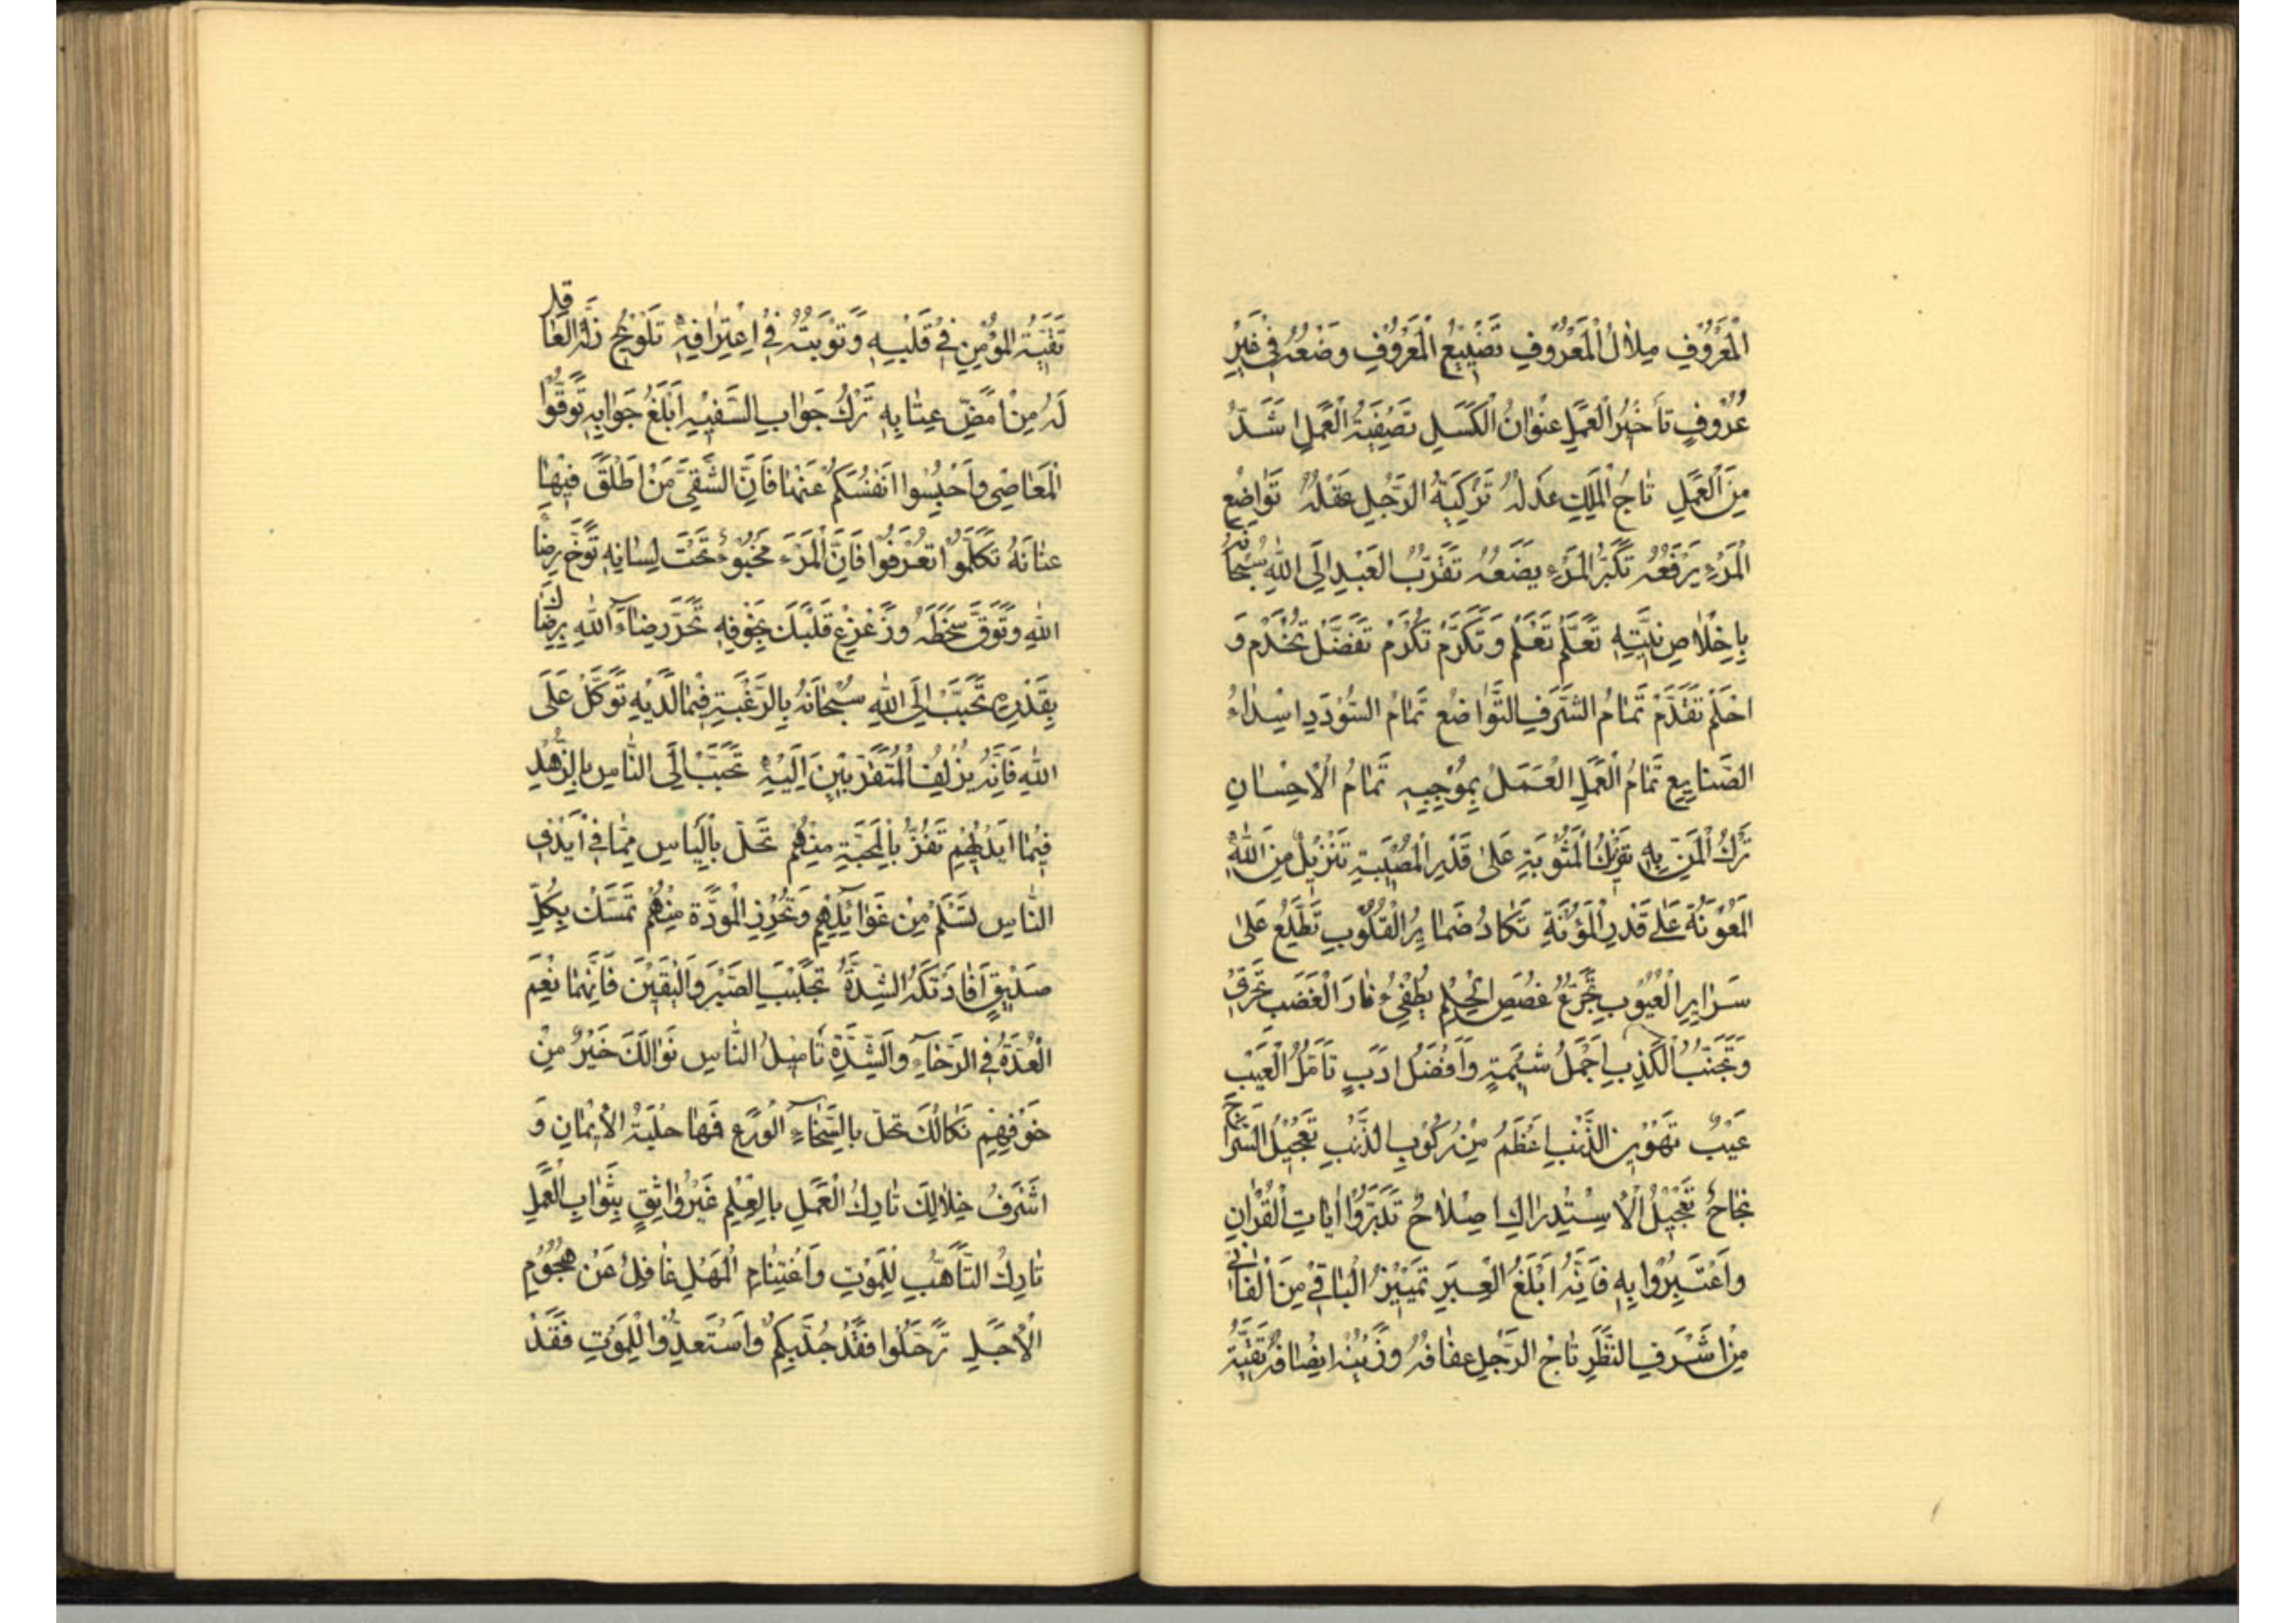 الْمَعْرُوفِ مِلَاكُ الْمَعْرُوفِ تَضْيِيعُ الْمَعْرُوفِ وَضْعُهُ فِي غَيْرِ
عُرُوفٍ تَأْخِيرُ الْعَمَلِ عُنْوَانُ الْكَسَلِ تَصْفِيَةُ الْعَمَلِ اَشَدُّ
مِنَ الْعَمَلِ تَاجُ الْمَلِكِ عَدْلُهُ تَزْكِيَةُ الرَّجُلِ عَقْلُهُ تَوَاضُعُ
الْمَرْءِ يَرْفَعُهُ تَكَبُّرُ الْمَرْءِ يَضَعُهُ تَقَرُّبُ الْعَبْدِ اِلَى اللهِ سُبْحَانَهُ
بِاِخْلَاصِ نِيَّتِهِ تَعَلَّمْ تَعْلَمْ وَتَكَرَّمْ تُكْرَمْ تَفَضَّلْ تُخْدَمْ وَ
احْلُمْ تُقَدَّمْ تَمَامُ الشَّرَفِ التَّوَاضُعُ تَمَامُ السُّؤْدَدِ اِسْدَاءُ
الصَّنَايِعِ تَمَامُ الْعَمَلِ الْعَمَلُ بِمُوْجِبِهِ تَمَامُ الْاِحْسَانِ
تَرْكُ الْمَنِّ بِهِ تَنْزِلُ الْمَثُوْبَةِ عَلٰى قَدْرِ الْمُصِيْبَةِ تَنْزِيْلٌ مِنَ اللهِ
الْمَعُوْنَةُ عَلٰى قَدْرِ الْمَؤُنَةِ تَكَادُ ضَمَايِرُ الْقُلُوبِ تَطَّلِعُ عَلٰى
سَرَايِرِ الْعُيُوبِ تَجَرُّعُ غُصَصِ الْحِلْمِ يُطْفِئُ نَارَ الْغَضَبِ تَحَرِّي
وَتَجَنُّبُ الْكَذِبِ اَجْمَلُ شِيْمَةٍ وَاَفْضَلُ اَدَبٍ تَأَمُّلُ الْعَيْبِ
عَيْبٌ تَهْوِيْنُ الذَّنْبِ اَعْظَمُ مِنْ رُكُوْبِ الذَّنْبِ تَعْجِيْلُ السَّرَاحِ
نَجَاحٌ تَعْجِيْلُ الْاِسْتِدْرَاكِ اِصْلَاحٌ تَدَبَّرُوْا اٰيَاتِ الْقُرْاٰنِ
وَاعْتَبِرُوا بِهِ فَاِنَّهُ اَبْلَغُ الْعِبَرِ تَمْيِيْزُ الْبَاقِيْ مِنَ الْفَانِيْ
مِنْ اَشْرَفِ النَّظَرِ تَاجُ الرَّجُلِ عَفَافُهُ وَزَيْنُهُ اِنْصَافُهُ تَقِيَّةُ
تَقِيَّةُ الْمُؤْمِنِ فِيْ قَلْبِهِ وَتَوْبَتُهُ فِيْ اِعْتِرَافِهِ تَلْوِيْحُ زَلَّةِ الْعَاقِلِ
لَهُ مِنْ اَمَضِّ عِتَابِهِ تَرْكُ جَوَابِ السَّفِيْهِ اَبْلَغُ جَوَابِهِ تَوَقَّوُا
الْمَعَاصِيَ وَاحْبِسُوا اَنْفُسَكُمْ عَنْهَا فَاِنَّ الشَّقِيَّ مَنْ اَطْلَقَ فِيْهَا
عِنَانَهُ تَكَلَّمُوْا تُعْرَفُوْا فَاِنَّ الْمَرْءَ مَخْبُوْءٌ تَحْتَ لِسَانِهِ تَوَخَّ رِضَا
اللهِ وَتَوَقَّ سَخَطَهُ وَزَعْزِعْ قَلْبَكَ بِخَوْفِهِ تَحَرَّ رِضَاءَ اللهِ بِرِضَاكَ
بِقَدَرِهِ تَحَبَّبْ اِلَى اللهِ سُبْحَانَهُ بِالرَّغْبَةِ فِيْمَا لَدَيْهِ تَوَكَّلْ عَلَى
اللهِ فَاِنَّهُ يُزْلِفُ الْمُتَقَرِّبِيْنَ اِلَيْهِ تَحَبَّبْ اِلَى النَّاسِ بِالزُّهْدِ
فِيْمَا اَيْدِيْهِمْ تَفُزْ بِالْمَحَبَّةِ مِنْهُمْ تَحَلَّ بِالْيَاسِ مِمَّا فِيْ اَيْدِي
النَّاسِ تَسْلَمْ مِنْ غَوَائِلِهِمْ وَتُحْرِزِ الْمَوَدَّةَ مِنْهُمْ تَمَسَّكْ بِكُلِّ
صَدِيْقٍ اَفَادَتْكَهُ الشِّدَّةُ تَجَلْبَبِ الصَّبْرَ وَالْيَقِيْنَ فَاِنَّهُمَا نِعْمَ
الْعُدَّةُ فِي الرَّخَاءِ وَالشِّدَّةِ تَامِيْلُ النَّاسِ نَوَالَكَ خَيْرٌ مِنْ
خَوْفِهِمْ نَكَالَكَ تَحَلَّ بِالسَّخَاءِ الْوَرَعِ فَهَا حِلْيَةُ الْاِيْمَانِ وَ
اَشْرَفُ خِلَالِكَ تَارِكُ الْعَمَلِ بِالْعِلْمِ غَيْرُ وَاثِقٍ بِثَوَابِ الْعَمَلِ
تَارِكُ التَّاَهُّبِ لِلْمَوْتِ وَاغْتِنَامِ الْمَهَلِ غَافِلٌ عَنْ هُجُوْمِ
الْاَجَلِ تَرَحَّلُوا فَقَدْ جُدَّ بِكُمْ وَاسْتَعِدُّوْا لِلْمَوْتِ فَقَدْ